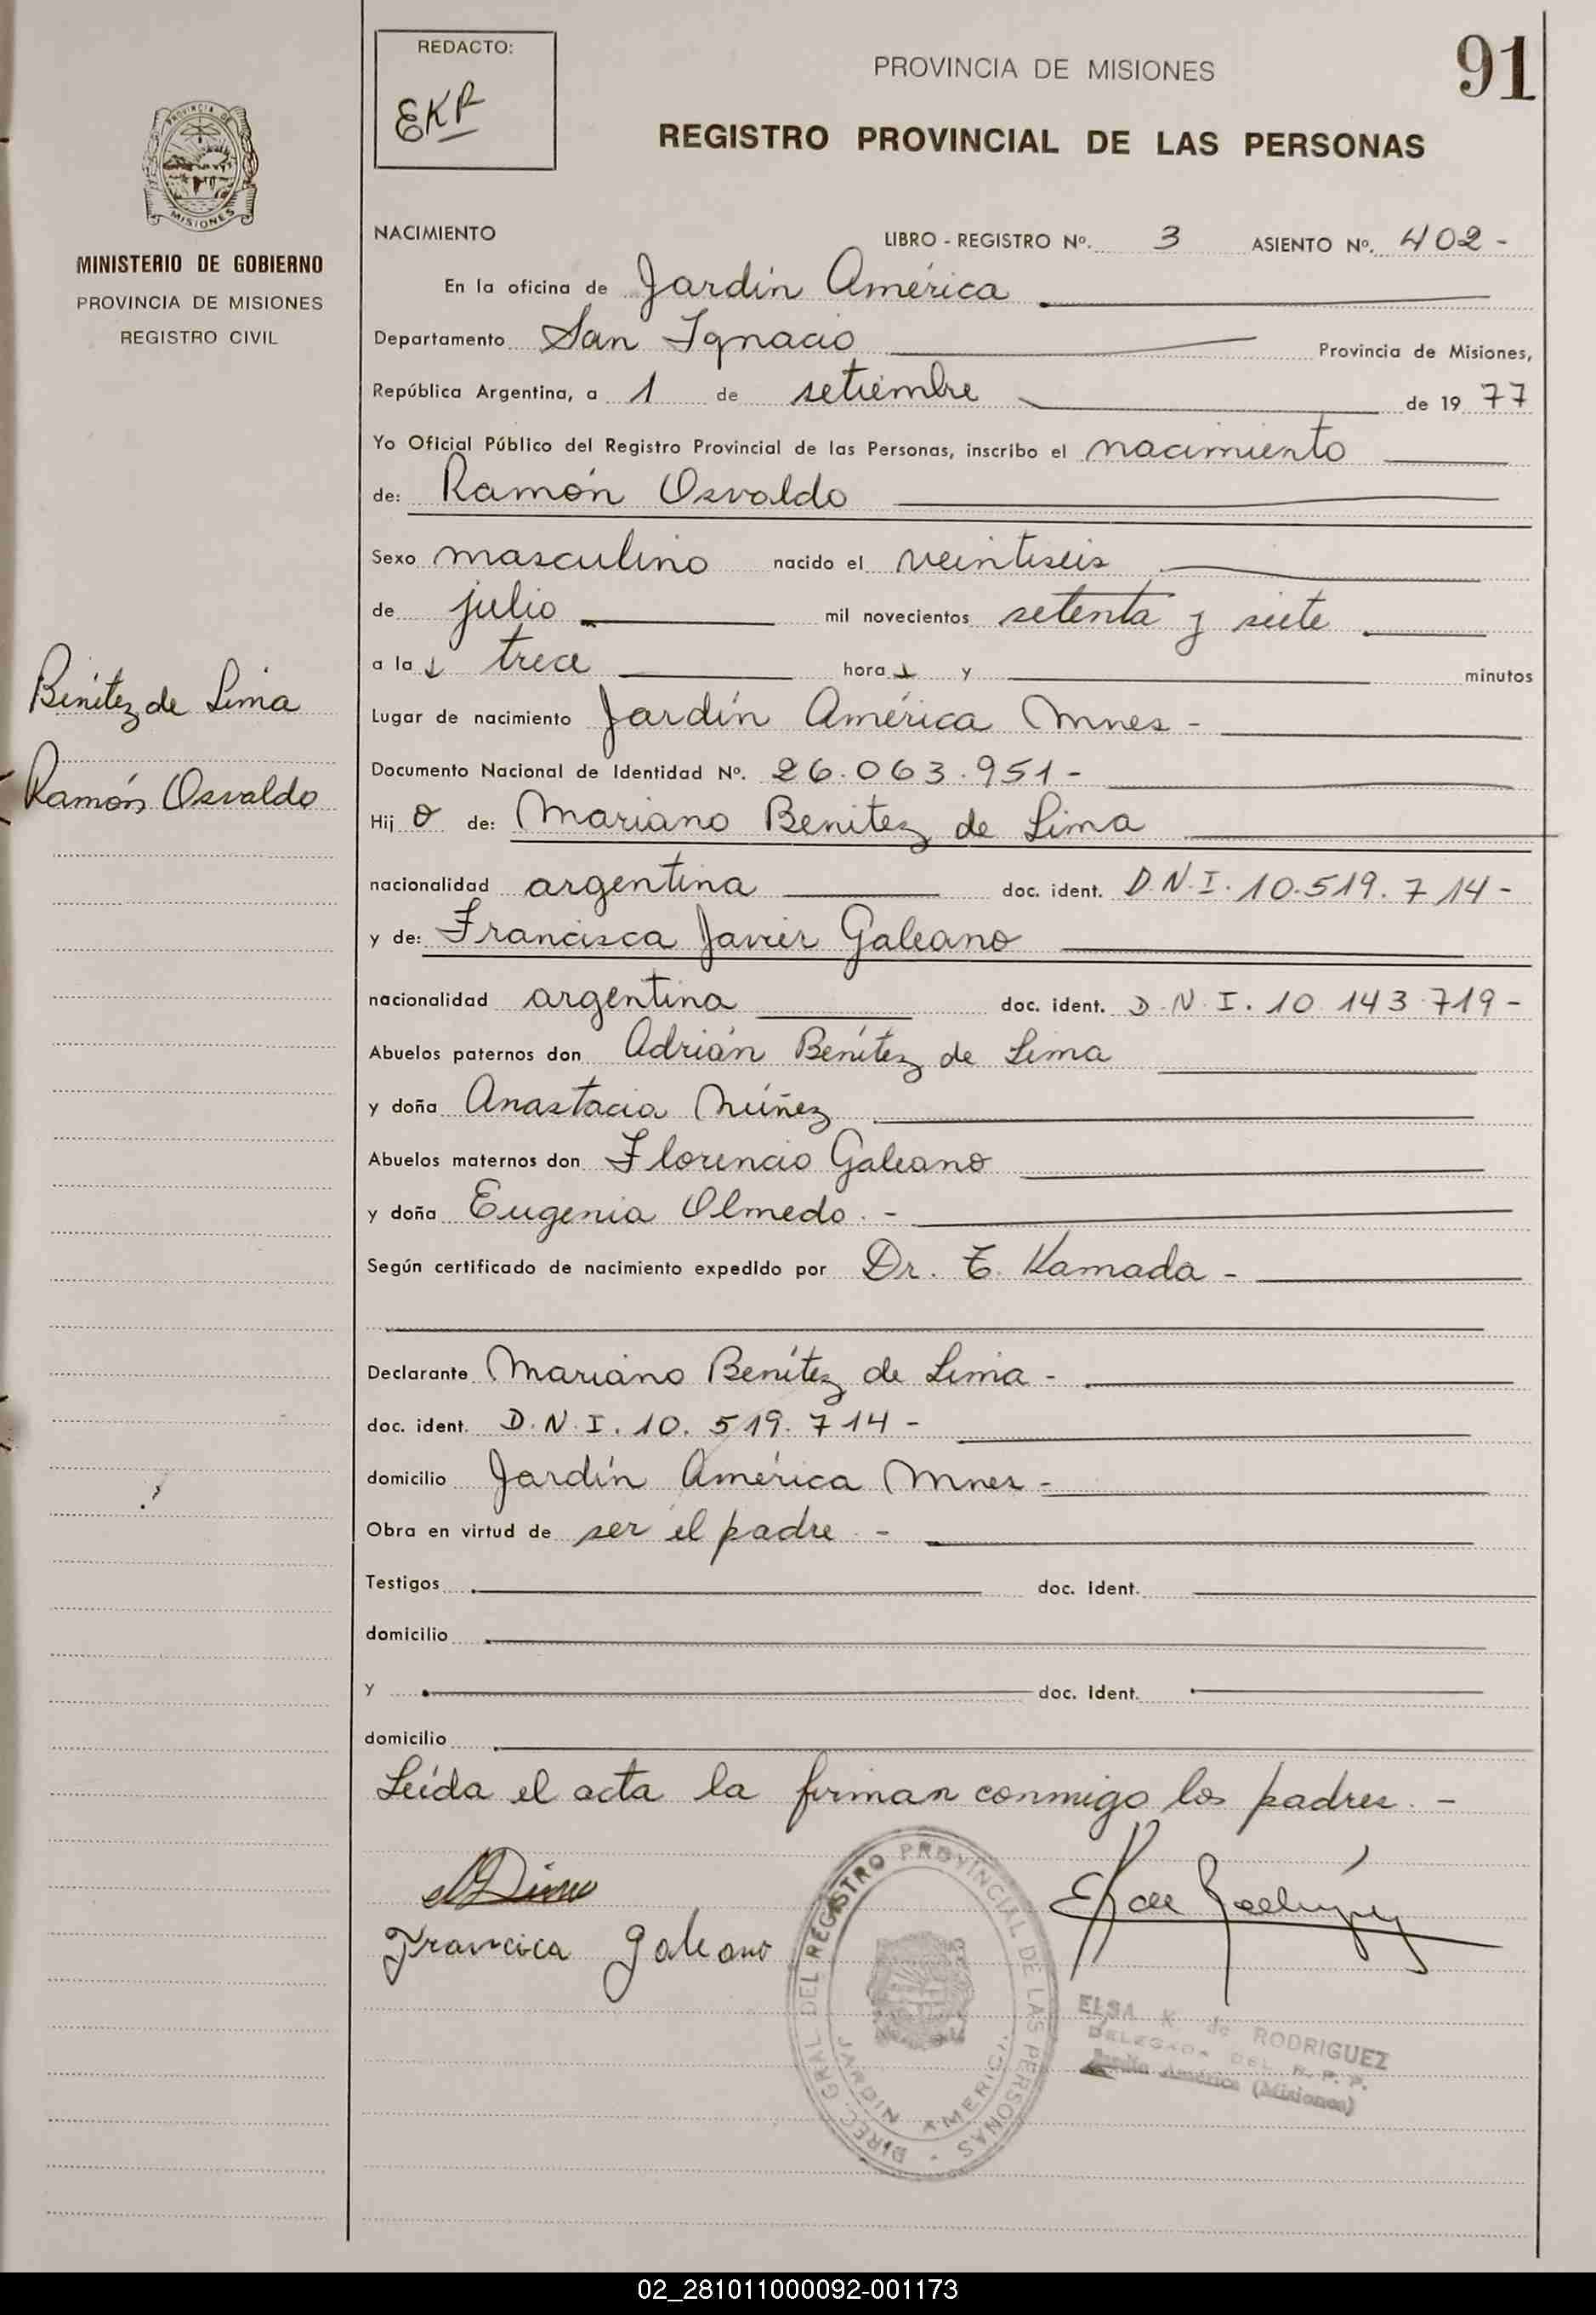 REDACTO:
EKR
PROVINCIA DE MISIONES
91
REGISTRO PROVINCIAL DE LAS PERSONAS
PROVINCIA DE
MISIONES
MINISTERIO DE GOBIERNO
PROVINCIA DE MISIONES
REGISTRO CIVIL
Benítez de Lima
Ramón Osvaldo
NACIMIENTO LIBRO - REGISTRO Nº. 3 ASIENTO Nº. 402 -
En la oficina de Jardín América
Departamento San Ignacio Provincia de Misiones,
República Argentina, a 1 de setiembre de 19 77
Yo Oficial Público del Registro Provincial de las Personas, inscribo el nacimiento
de: Ramón Osvaldo
Sexo masculino nacido el veintiseis
de julio mil novecientos setenta y siete
a la s trece hora s y minutos
Lugar de nacimiento Jardín América Mnes -
Documento Nacional de Identidad Nº. 26.063.951 -
Hij o de: Mariano Benítez de Lima
nacionalidad argentina doc. ident. D.N.I. 10.519.714 -
y de: Francisca Javier Galeano
nacionalidad argentina doc. ident. D.N.I. 10.143.719 -
Abuelos paternos don Adrián Benítez de Lima
y doña Anastacia Núñez
Abuelos maternos don Florencio Galeano
y doña Eugenia Olmedo. -
Según certificado de nacimiento expedido por Dr. T. Kamada -
Declarante Mariano Benítez de Lima -
doc. ident. D.N.I. 10.519.714 -
domicilio Jardín América Mnes -
Obra en virtud de ser el padre. -
Testigos doc. ident.
domicilio
y doc. ident.
domicilio
Leída el acta la firman conmigo los padres. -
Francica galeano
DIREC. GRAL DEL REGISTRO PROVINCIAL DE LAS PERSONAS
JARDIN AMERICA
ELSA K. de RODRIGUEZ
DELEGADA DEL R. P. P.
Jardín América (Misiones)
02_281011000092-001173